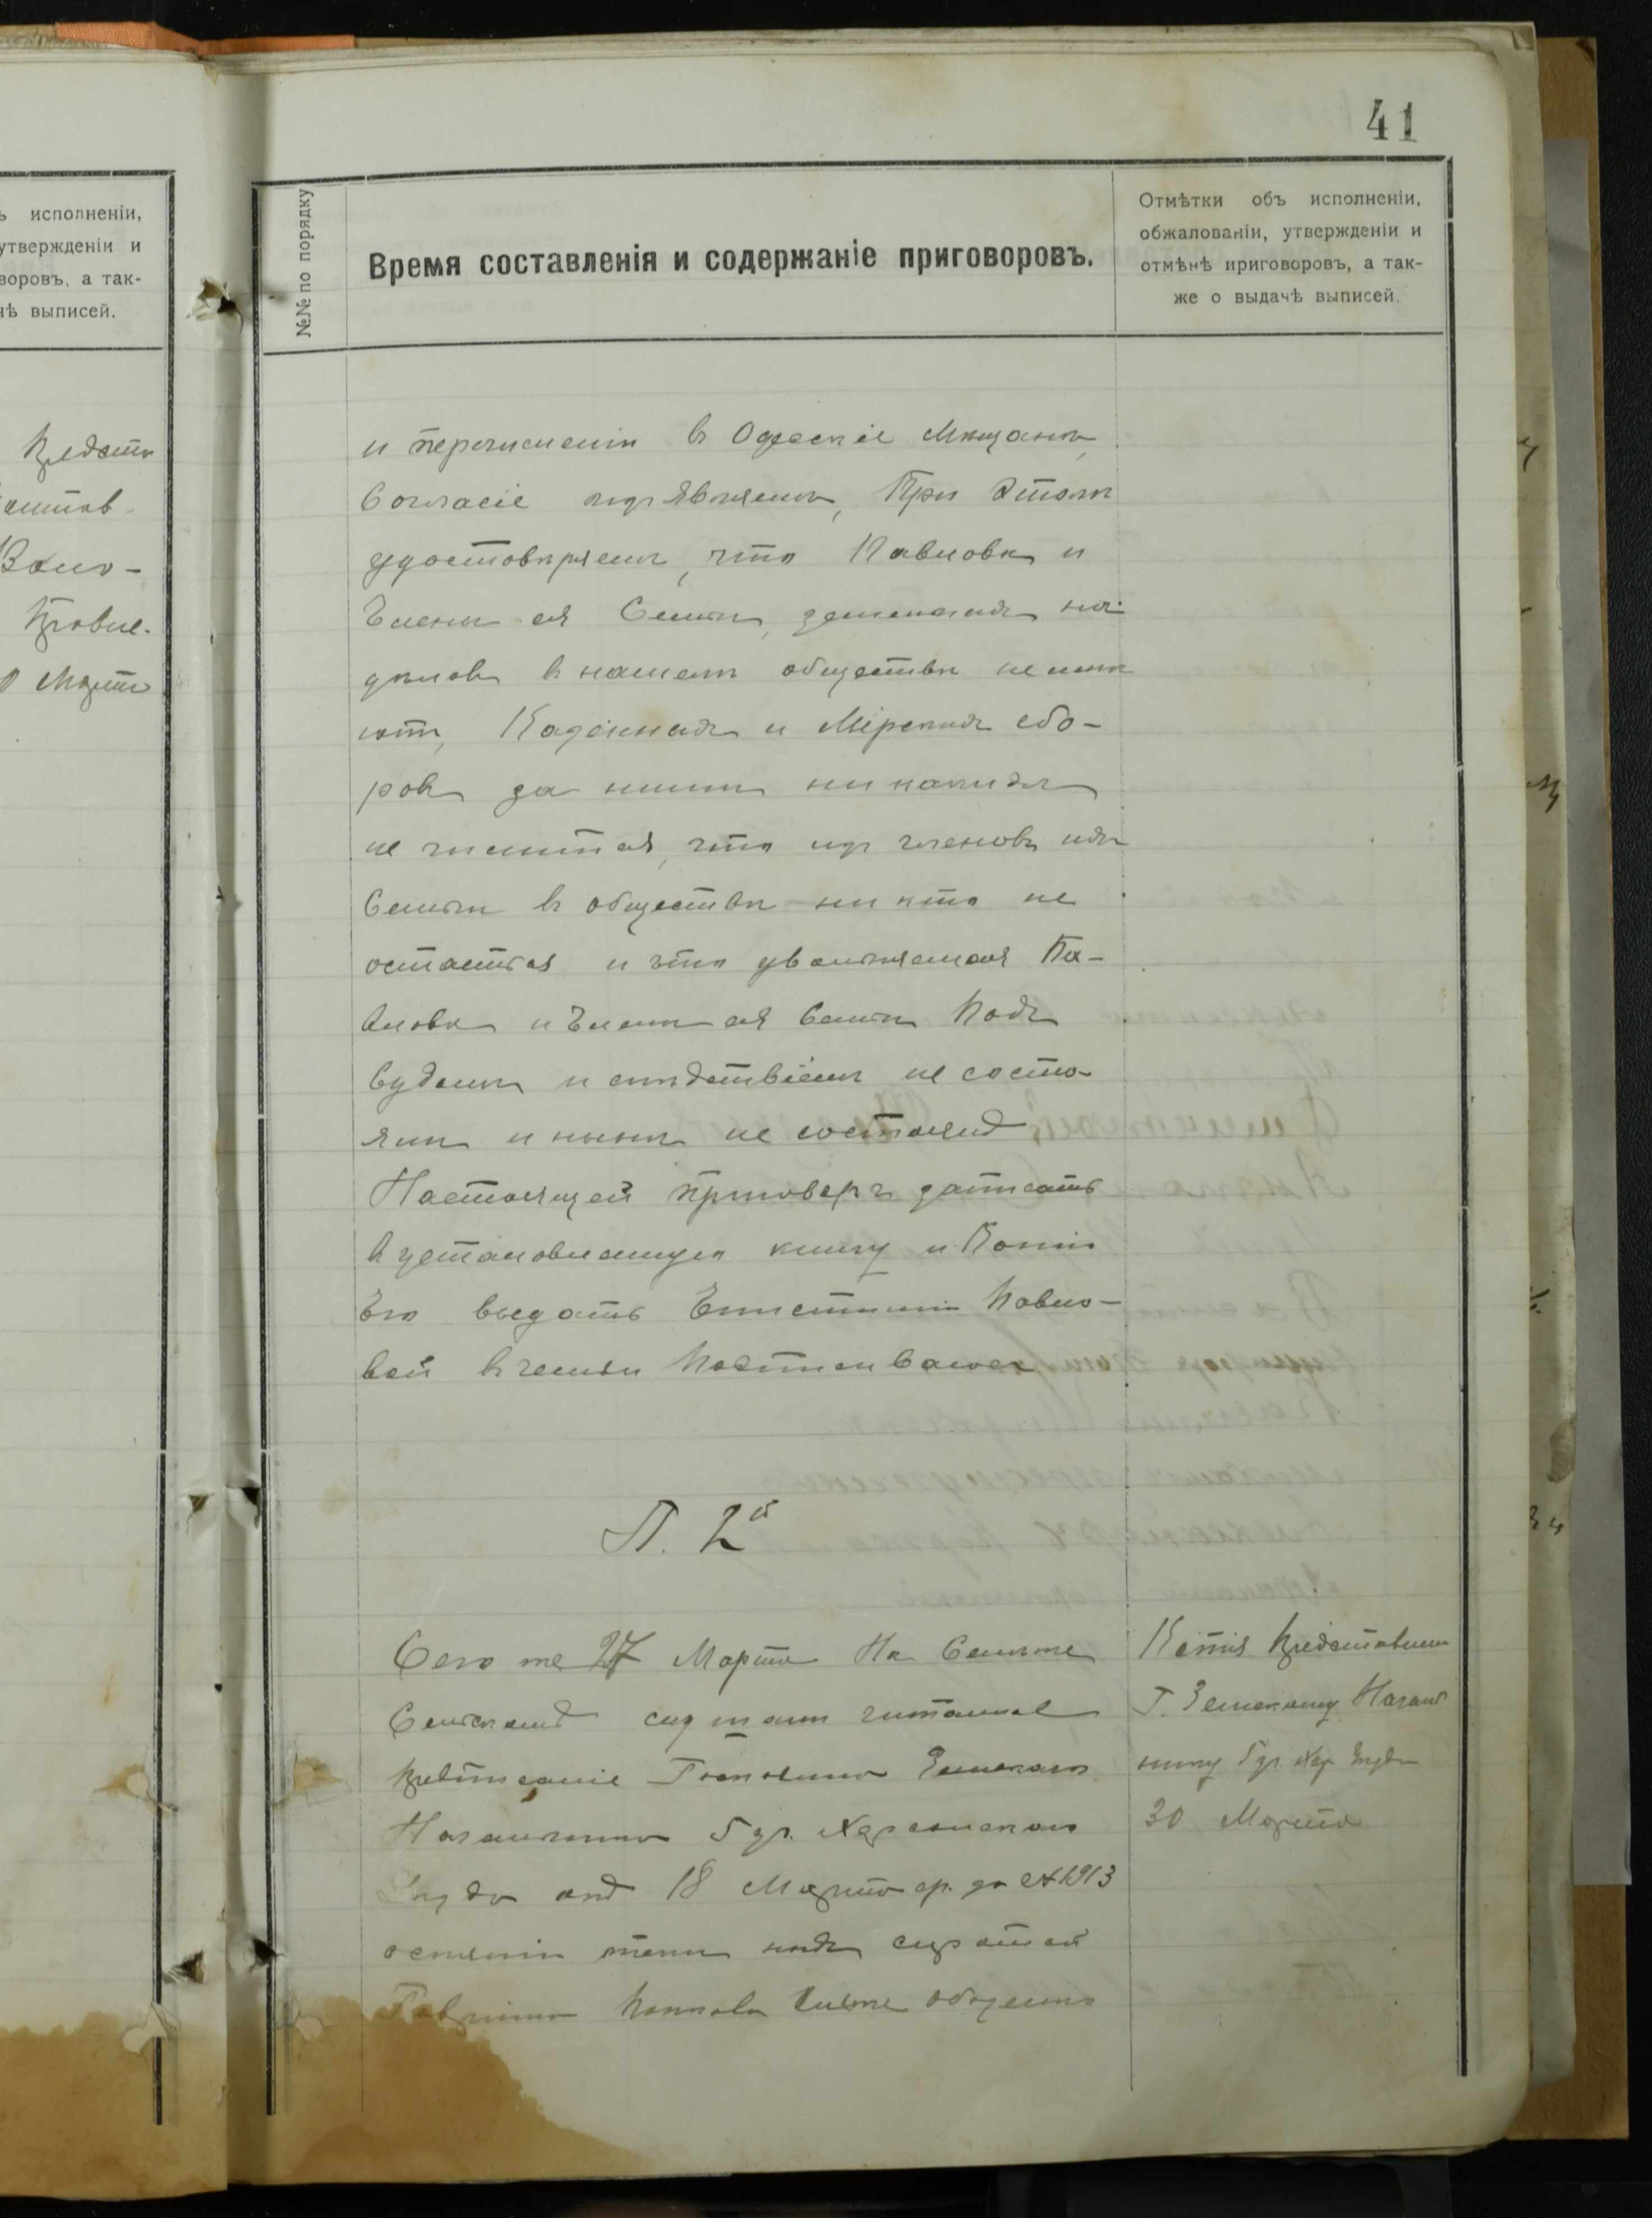 41
ъ исполненіи,
утвержденіи и
воровъ, а так-
чѣ выписей.
№№ по порядку
Время составленія и содержаніе приговоровъ.
Отмѣтки объ исполненіи,
обжалованіи, утвержденіи и
отмѣнѣ приговоровъ, а так-
же о выдачѣ выписей.
Марта
и перечисленіи въ Одескіе Мищани,
Согласіе изъявляемъ, При Этомъ
удостовѣряемъ, что Павлова и
Члены ея Семьи, земельныхъ на
дѣловъ въ нашемъ обществѣ не имѣ
ютъ, Казенныхъ и Мірскихъ сбо-
ровъ за ними никакихъ
не числится, что изъ членовъ ихъ
Семьи въ обществѣ ни кто не
остается и что увольняемая Па-
влова и Члены ея Семьи подъ
Судомъ и слѣдствіемъ не состо-
яли и нынѣ не состоятъ
Настоящей приговоръ записать
въ установленную книгу и Копію
Его выдать Павло-
вой въ чемъ и подписываемся
П. 2й
Сего же 27 Марта На Семъ же
Сельскомъ сходѣ намъ читанное
предписаніе Господина Земскаго
Начальника 5 уч. Херсонскаго
Уѣзда отъ 18 Марта с.г. за № 1913
Гавріила
Копія представлена
Г. Земскому Началь
нику 5 уч. Хер Уѣзда
30 Марта